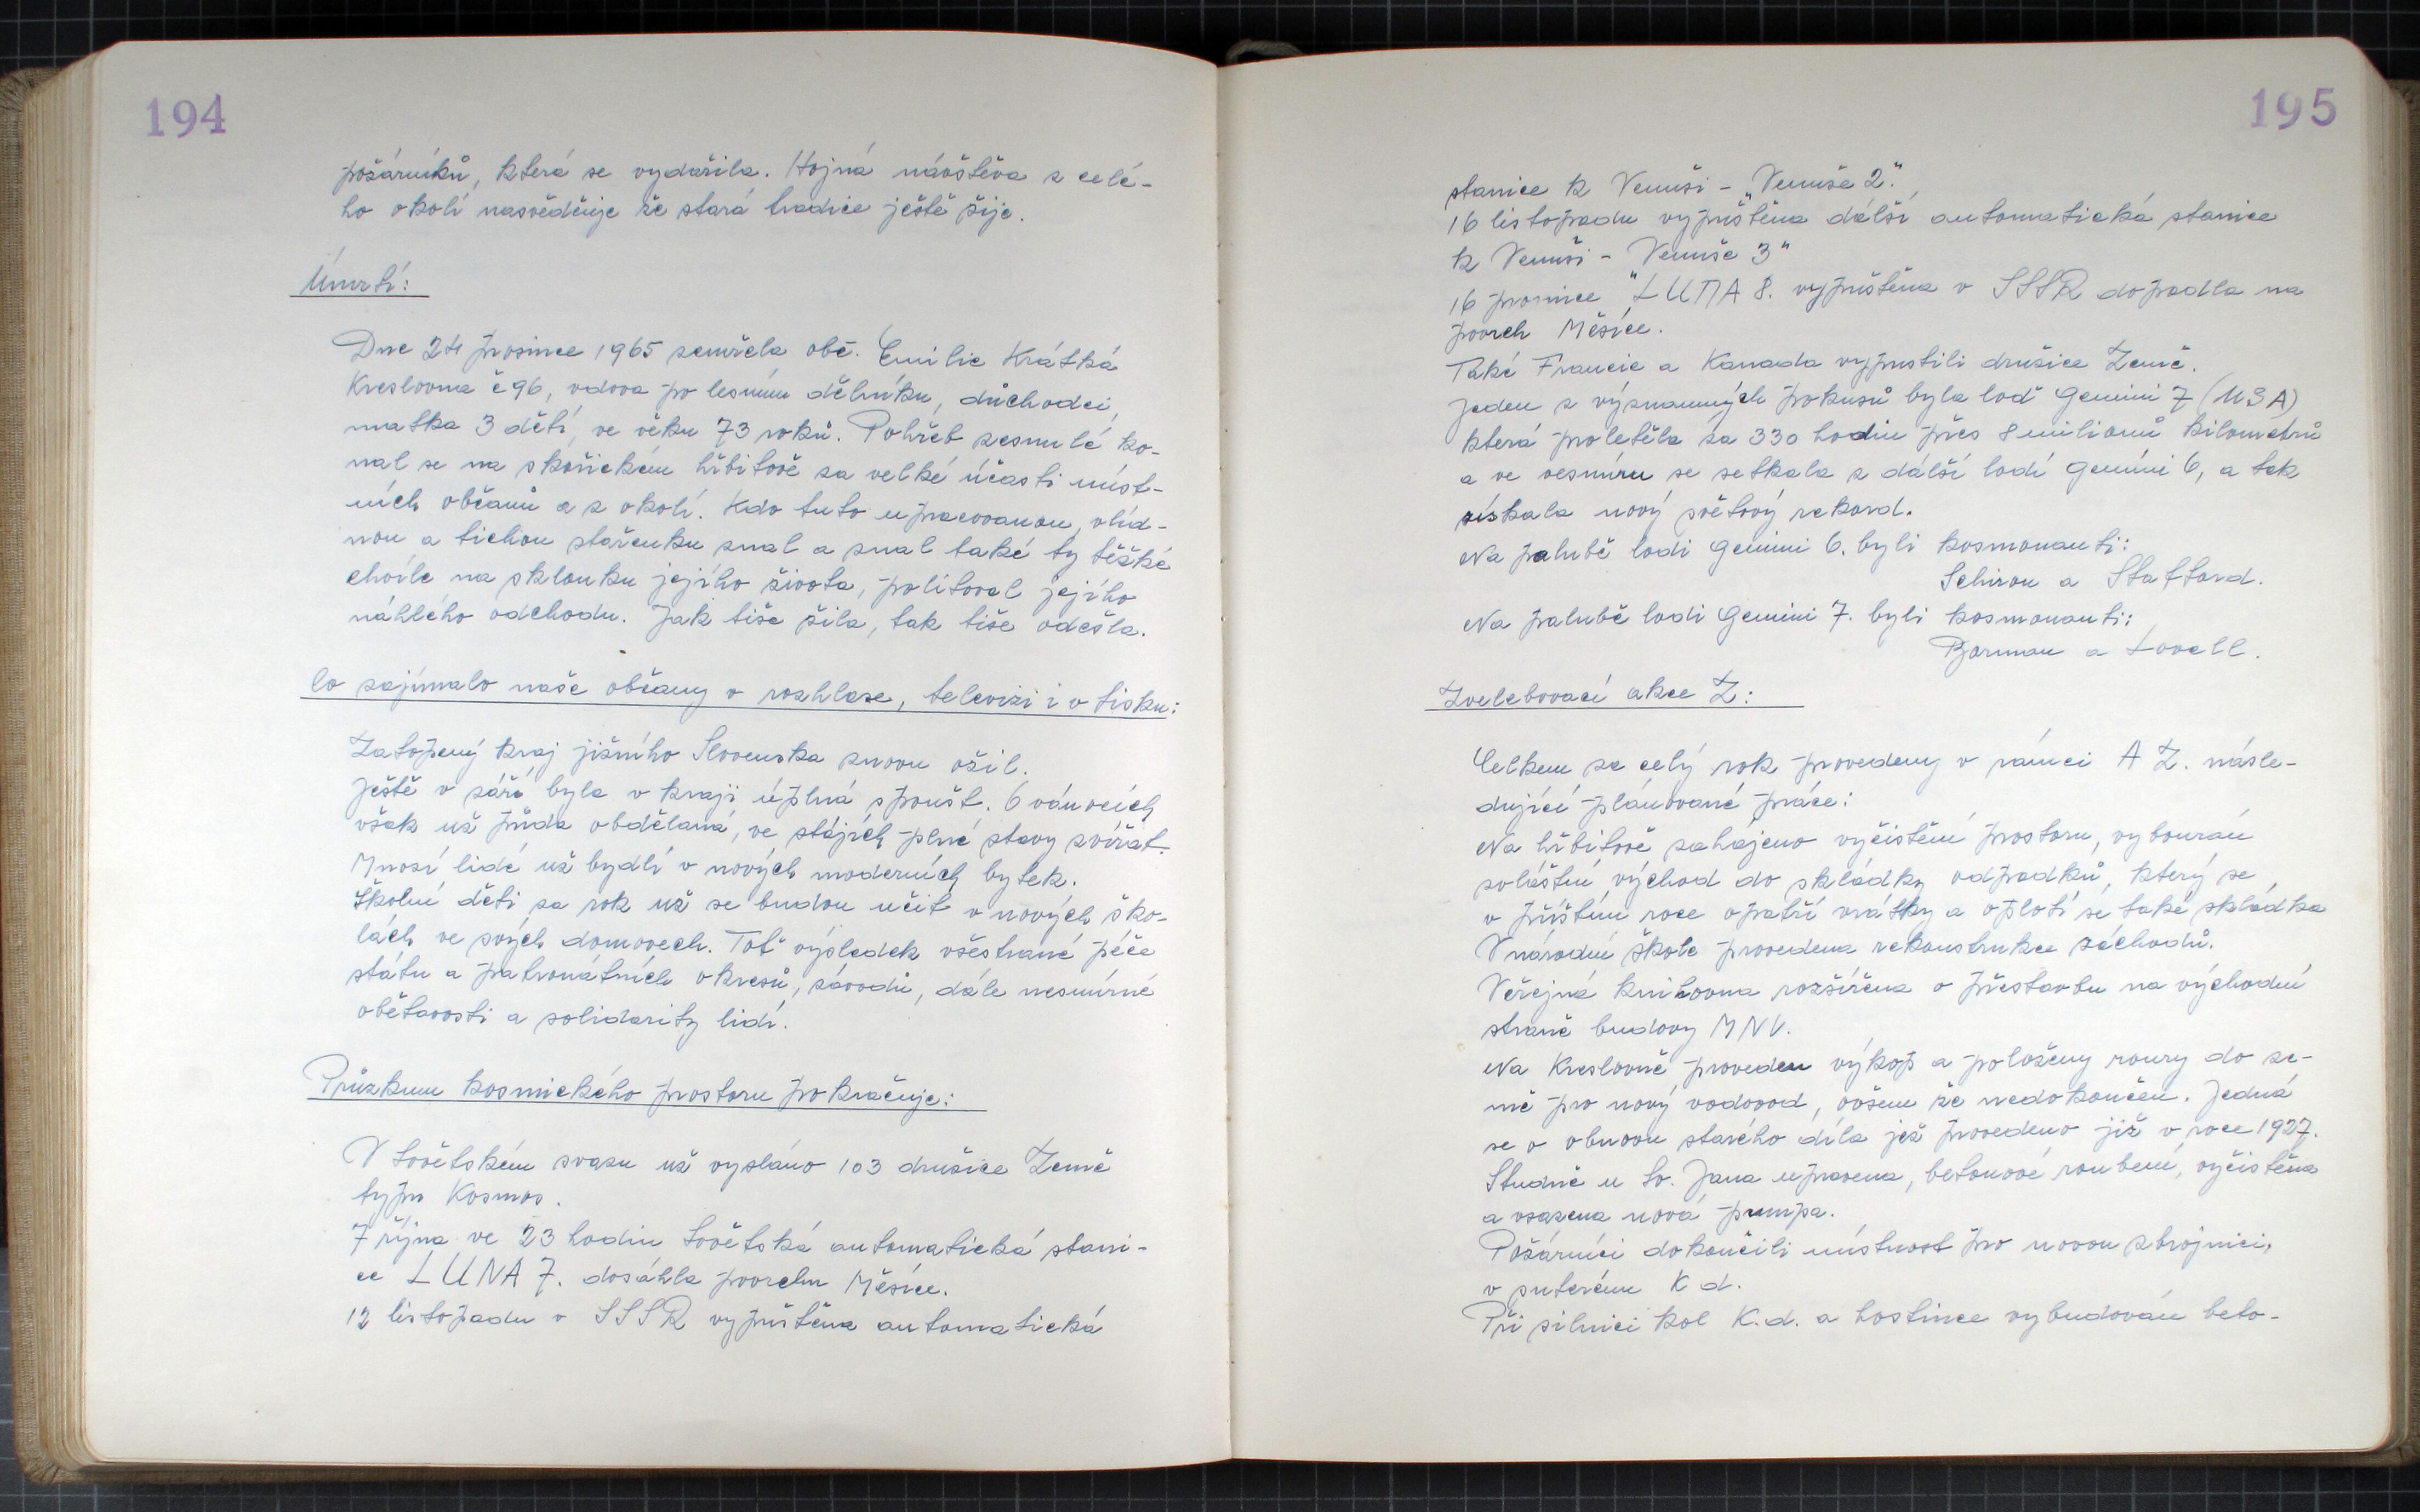 194
požárníků, která se vydařila. Hojná návštěva z celé-
ho okolí nasvědčuje že stará tradice ještě žije.
Úmrtí:
Dne 24 prosince 1965 zemřela obč. Emilie Krátká
Kreslovna č 96, vdova po lesním dělníku, důchodci,
matka 3 dětí, ve věku 73 roků. Pohřeb zesnulé ko-
nal se na skořickém hřbitově za velké účasti míst-
ních občanů a z okolí. Kdo tuto upracovanou, vlíd-
nou a tichou stařenku znal a znal také ty těžké
chvíle na sklonku jejího života, politoval jejího
náhlého odchodu. Jak tiše žila, tak tiše odešla.
Co zajímalo naše občany v rozhlase, televizi i v tisku:
Zatopený kraj jižního Slovenska znovu ožil.
Ještě v září byla v kraji úplná spoušť. O vánocích
však už půda obdělaná, ve stájích plné stavy zvířat.
Mnozí lidé už bydlí v nových moderních bytek.
Školní děti za rok už se budou učit v nových ško-
lách ve svých domovech. Toť výsledek všestrané péče
státu a patronátních okresů, závodů, dále nesmírné
obětavosti a solidarity lidí.
Průzkum kosmického prostoru pokračuje:
V Sovětském svazu už vysláno 103 družice Země
typu Kosmos.
7 října ve 23 hodin Sovětská automatická stani-
ce LUNA 7. dosáhla povrchu Měsíce.
12 listopadu v SSSR vypuštěna automatická
195
stanice k Venuši - „Venuše 2".
16 listopadu vypuštěna dálší automatická stanice
k Venuši - Venuše 3"
16 prosince "LUNA 8. vypuštěna v SSSR dopadla na
povrch Měsíce.
Také Francie a Kanada vypustili družice Země.
Jeden z významných pokusů byla loď Gemini 7 (USA)
která proletěla za 330 hodin přes 8 milionů kilometrů
a ve vesmíru se setkala z dálší lodí Gemini 6, a tak
získala nový světový rekord.
Na palubě lodi Gemini 6. byli kosmonauti:
Schirou a Stafford.
Na palubě lodi Gemini 7. byli kosmonauti:
Borman a Lovell.
Zvelebovací akce Z:
Celkem za celý rok provedeny v rámci A Z. násle-
dující plánované práce:
Na hřbitově zahájeno vyčistění prostoru, vybourán
zvláštní východ do skládky odpadků, který se
v příštím roce opatří vrátky a oplotí se také skládka
V národní škole provedena rekonstrukce záchodů.
Veřejná knihovna rozšířena o přestavbu na východní
straně budovy MNV.
Na Kreslovně proveden výkop a položeny roury do ze-
mě pro nový vodovod, ovšem že nedokončen. Jedná
se o obnovu starého díla jež provedeno již v roce 1927.
Studně u Sv. Jana upravena, betonové roubení, vyčistěna
a vsazena nová pumpa.
Požárníci dokončili místnost pro novou zbrojnici,
v suterénu K d.
Při silnici kol K.d. a hostince vybudován beto-